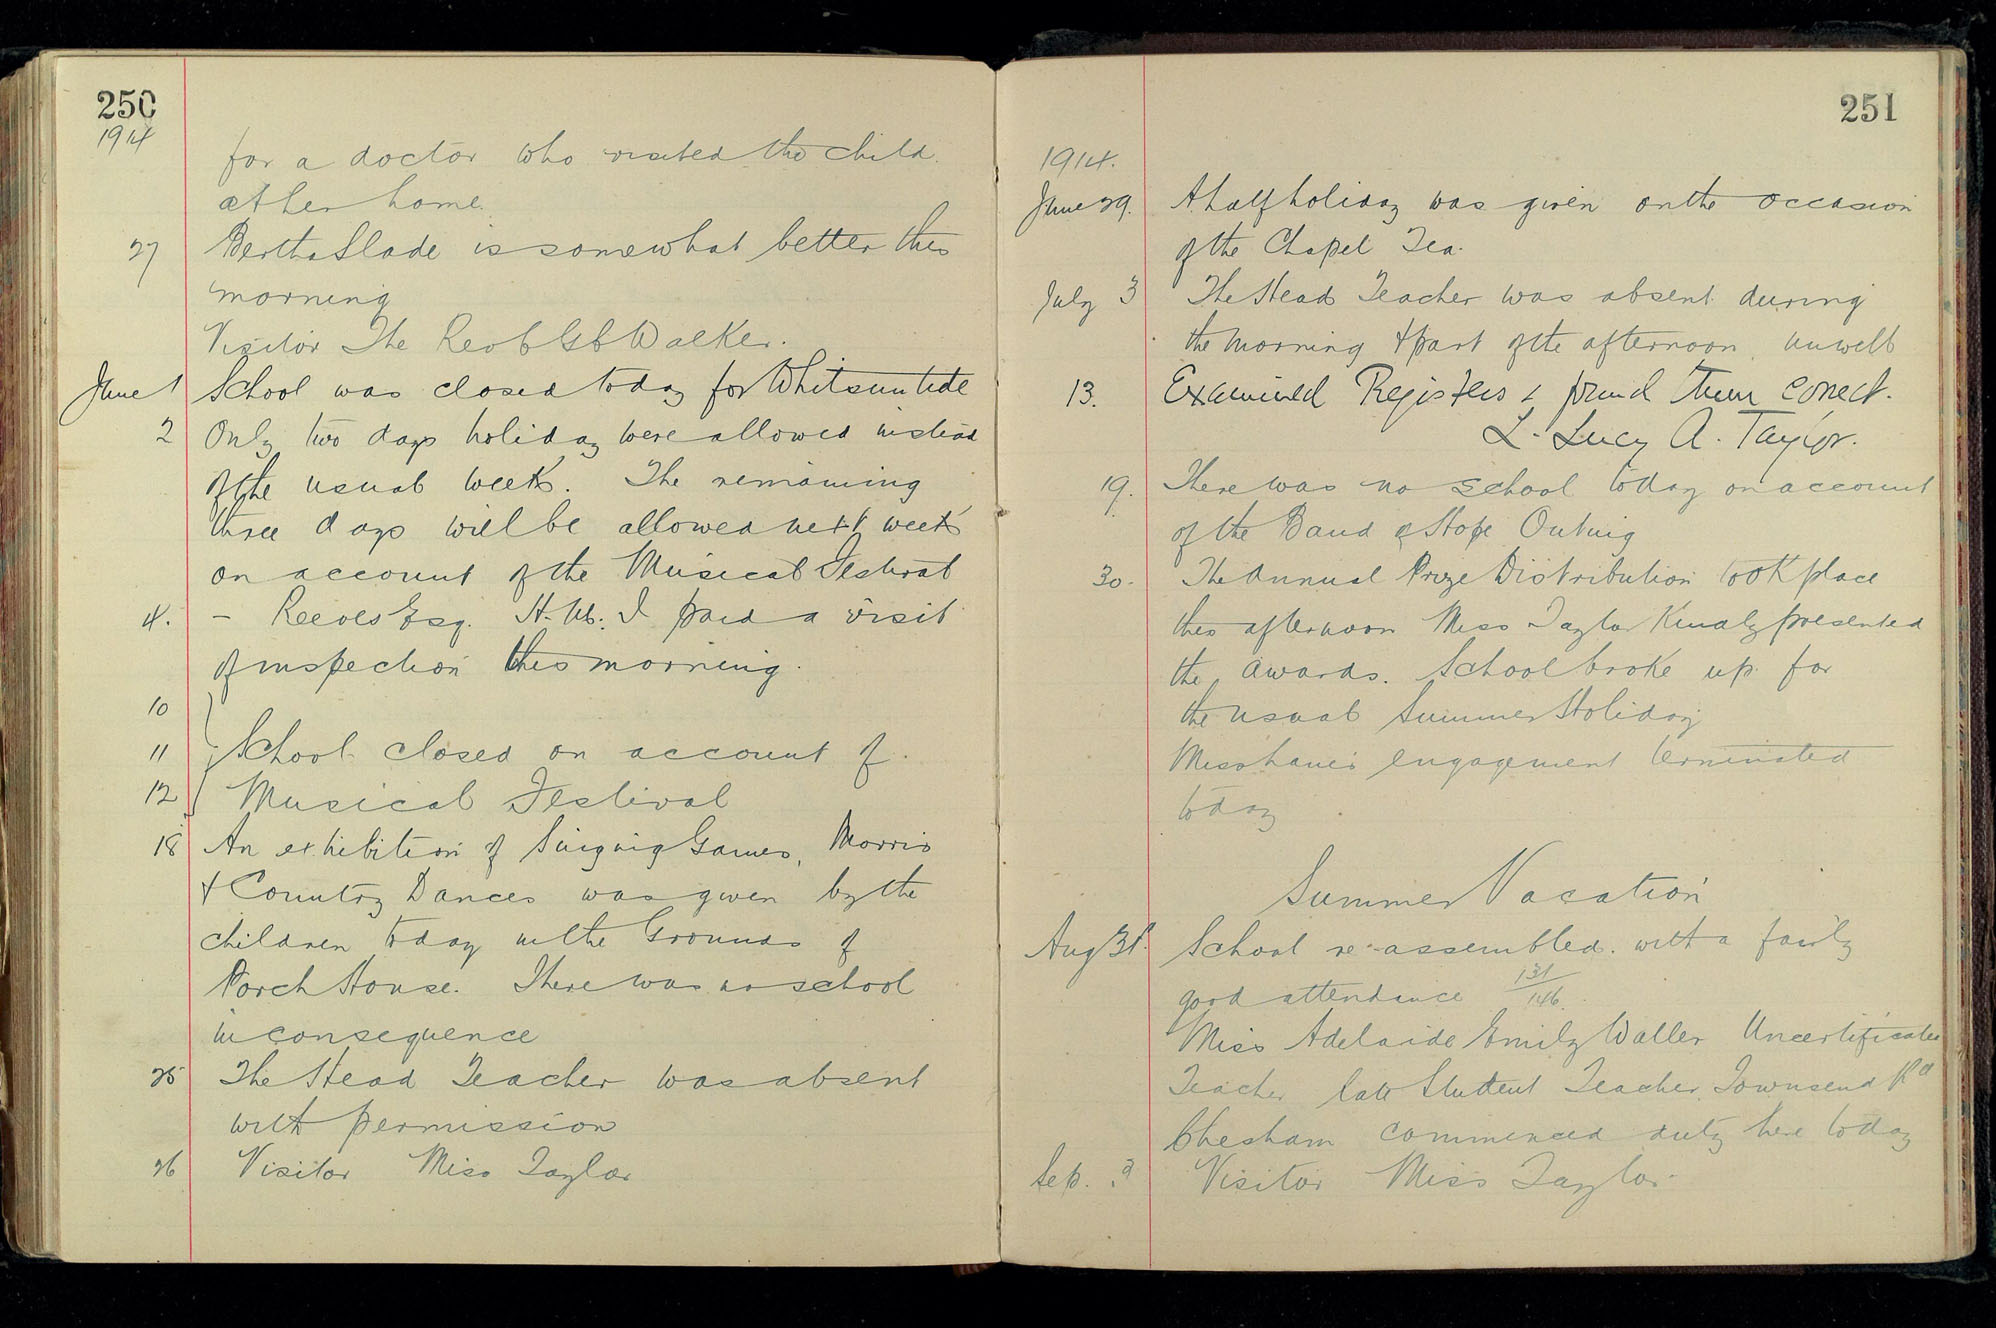 250
1914
for a doctor who visited the child
at her home.
27 Bertha Slade is somewhat better this
morning
Visitor The Rev C G C Walker.
June 1 School was closed today for Whitsuntide
2 Only two days holiday were allowed instead
of the usual week. The remaining
three days will be allowed next week
on account of the Musical Festival
4. – Reeves Esq. H.M.I paid a visit
of inspection this morning.
10
11 School closed on account of
12 Musical Festival
18 An exhibition of Singing Games, Morris
& Country Dances was given by the
children today in the Grounds of
Porch House. There was no school
in consequence
25 The Head Teacher was absent
with permission
26 Visitor Miss Taylor
251
1914.
June 29. A half holiday was given on the occasion
of the Chapel Tea.
July 3 The Head Teacher was absent during
the morning & part of the afternoon, unwell
13. Examined Registers & found them correct.
L. Lucy A. Taylor.
19. There was no school today on account
of the Band of Hope Outing
30. The Annual Prize Distribution took place
this afternoon Miss Taylor kindly presented
the awards. School broke up for
the usual Summer Holiday
Miss engagement terminated
today
Summer Vacation
Aug 31. School re-assembled with a fairly
good attendance 131/146.
Miss Adelaide Emily Waller Uncertificated
Teacher late Student Teacher, Townsend Rd
Chesham commenced duty here today
Sep. 3 Visitor Miss Taylor.